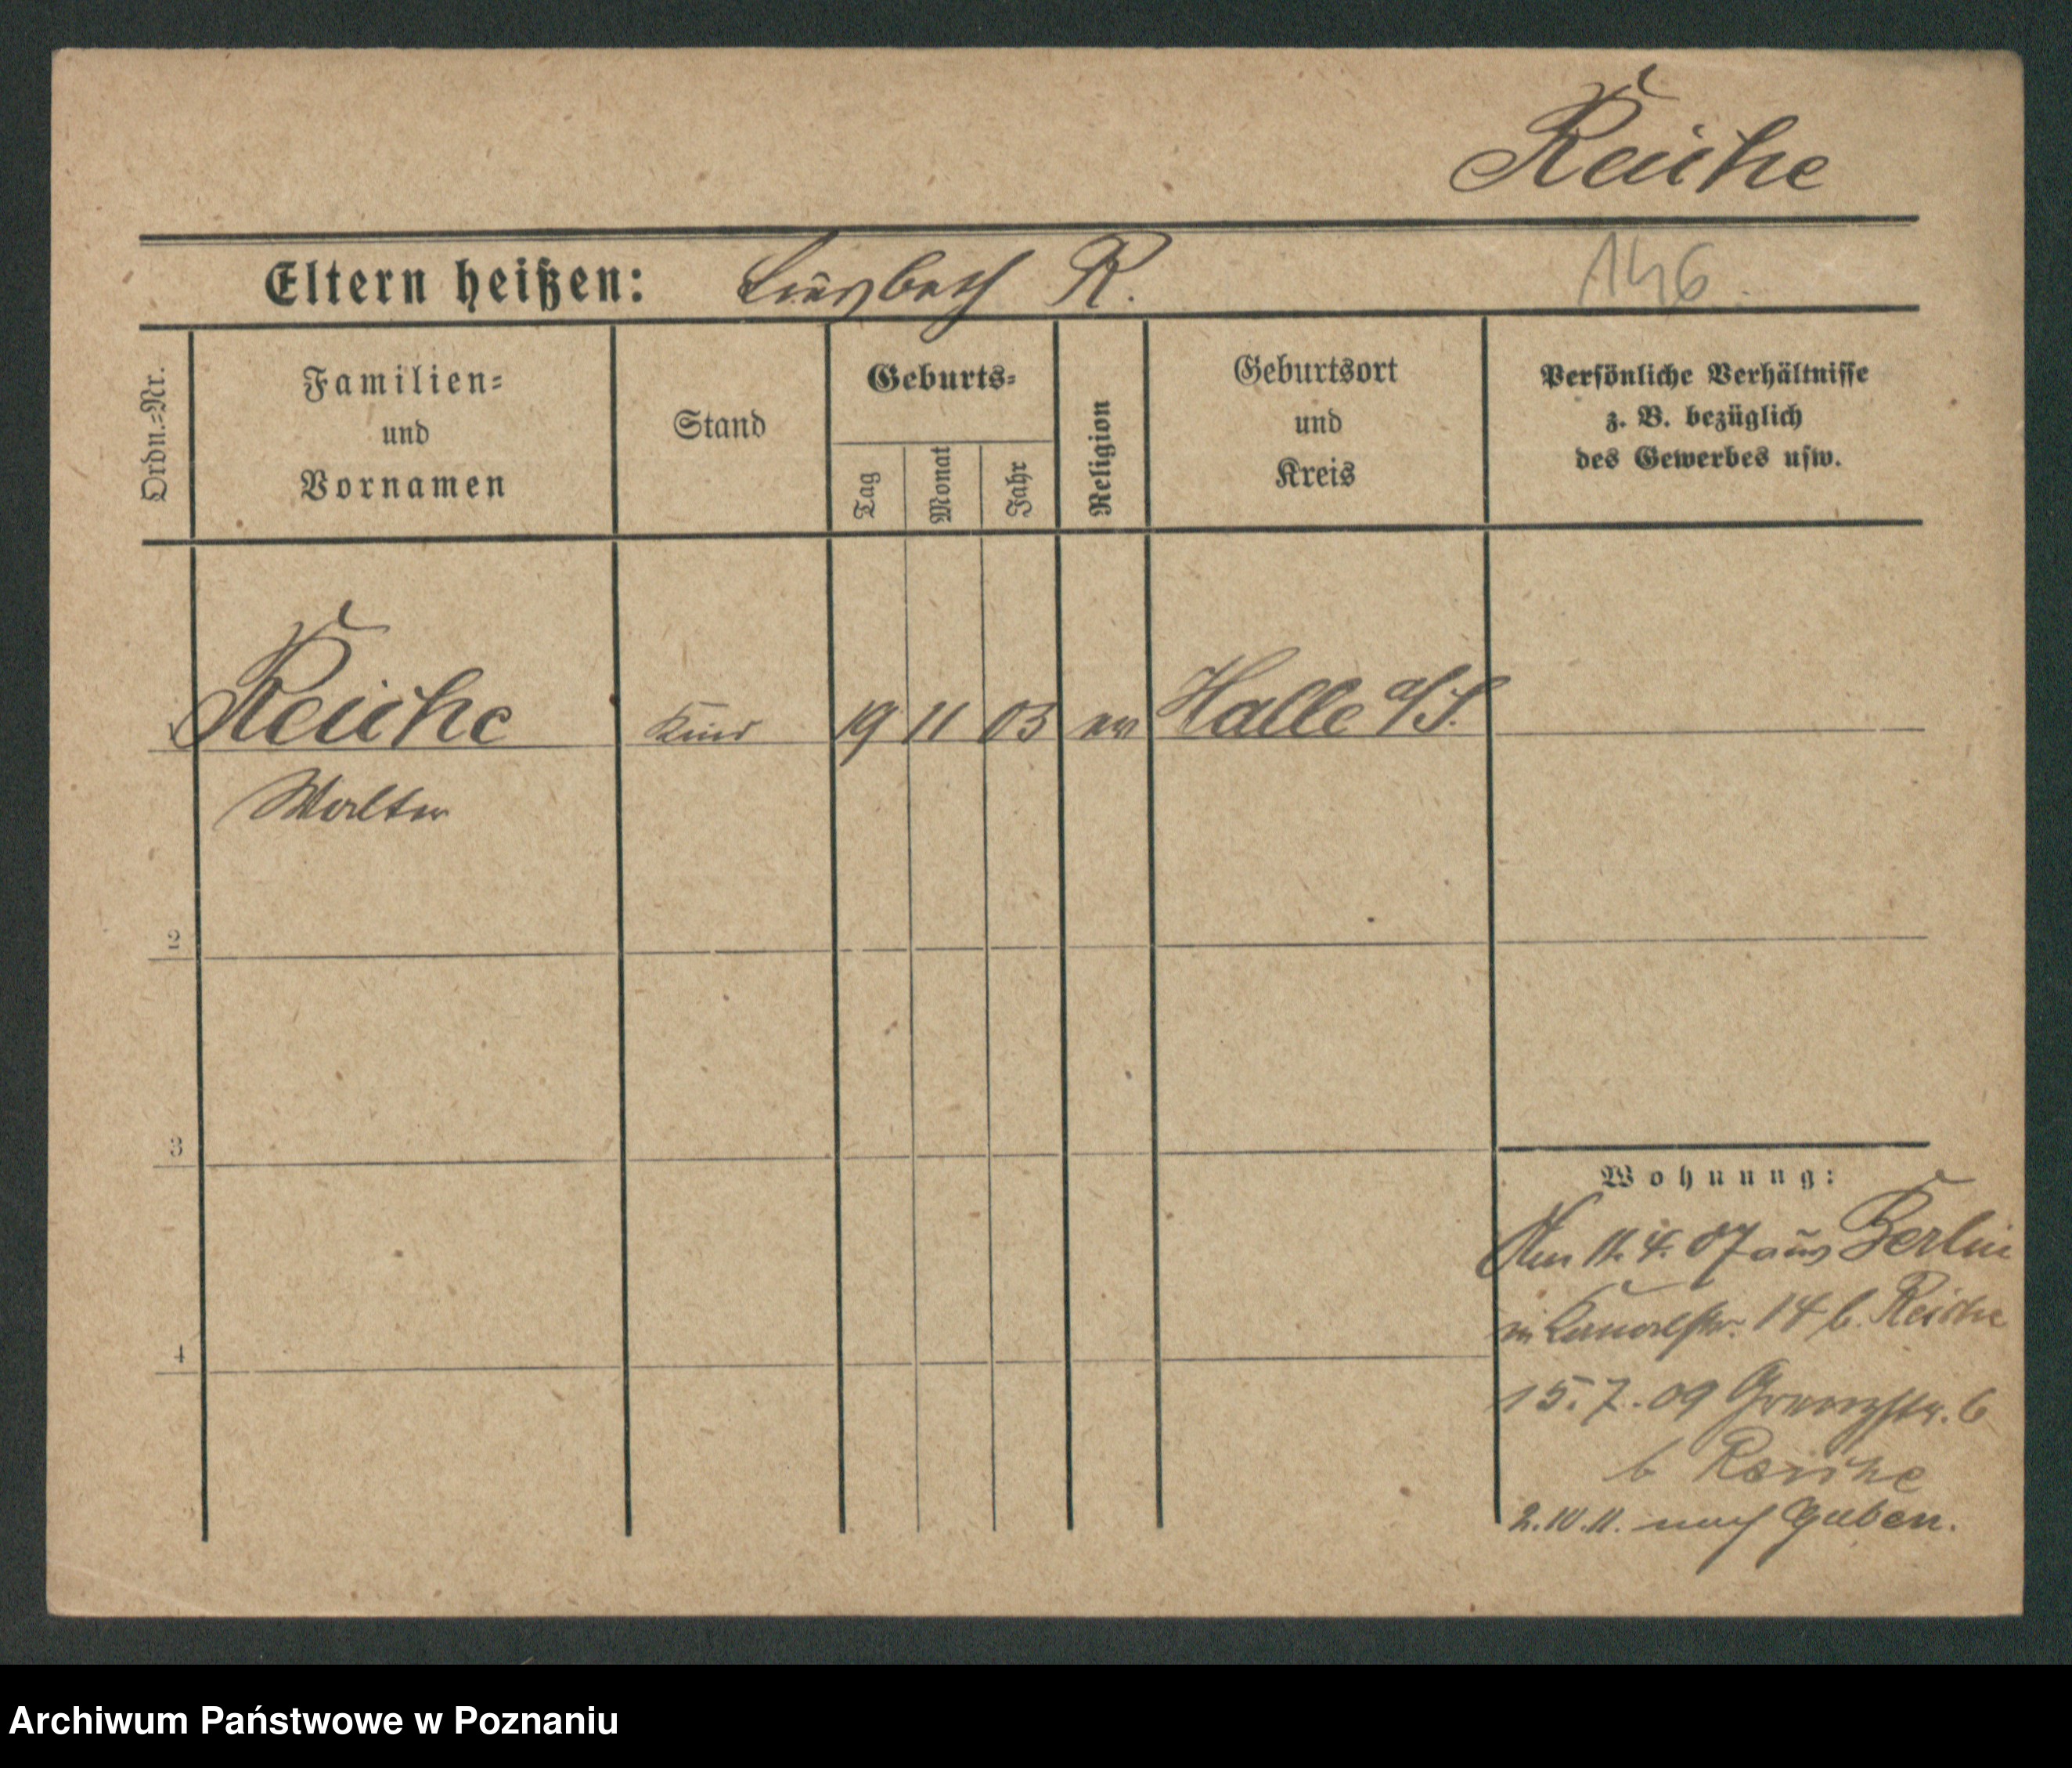 Reiche
Eltern heißen: R.
146.
Ordn.=Nr.
Familien=
und
Vornamen
Stand
Geburts=
Tag
Monat
Jahr
Religion
Geburtsort
und
Kreis
Persönliche Verhältnisse
z. B. bezüglich
des Gewerbes usw.
Reiche Kind 19 11 03 ev Halle a/S.
Walter
2
3
4
Wohnung:
Am 11.4.07 aus Berlin
in Kanalstr. 14 b. Reiche
15.7.09 6
b Reiche
2.10.11. nach Guben.
Archiwum Państwowe w Poznaniu